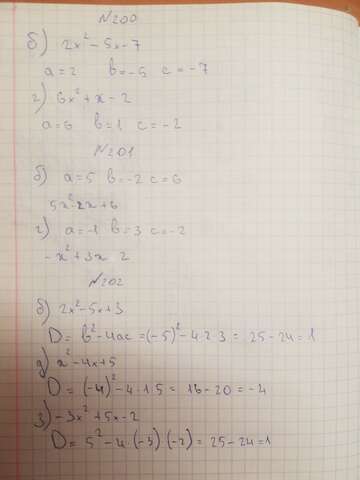 №200
б) 2x² - 5x - 7
a = 2 b = -5 c = -7
г) 6x² + x - 2
a = 6 b = 1 c = -2
№201
б) a = 5 b = -2 c = 6
5x² - 2x + 6
г) a = -1 b = 3 c = -2
-x² + 3x 2
№202
б) 2x² - 5x + 3
D = b² - 4ac = (-5)² - 4·2·3 = 25 - 24 = 1
д) x² - 4x + 5
D = (-4)² - 4·1·5 = 16 - 20 = -4
з) -3x² + 5x - 2
D = 5² - 4·(-3)·(-2) = 25 - 24 = 1